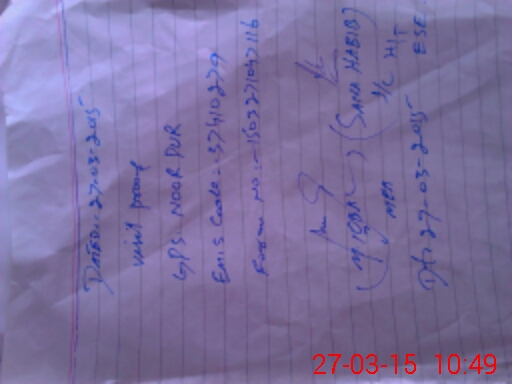 Dated:- 27-03-2015
visit proof
GPS NOOR PUR
Emis Code - 37410279
(M IQBAL) (SAMA HABIB)
MEA I/C H/T
Dt. 27-03-2015 ESE
27-03-15 10:49